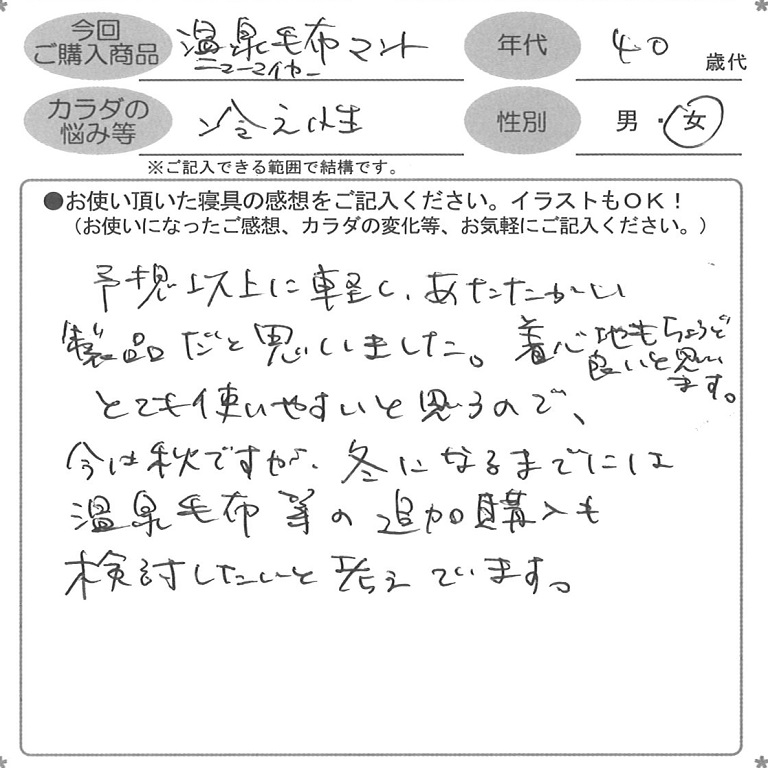 今回
ご購入商品
温泉毛布マント
ニューマイヤー
年代
40
歳代
カラダの
悩み等
冷え性
性別
男・女
※ご記入できる範囲で結構です。
●お使い頂いた寝具の感想をご記入ください。イラストもOK!
(お使いになったご感想、カラダの変化等、お気軽にご記入ください。)
予想以上に軽く、あたたかい
製品だと思いしました。着心地もちょうど
良いと思い
ます。
とても使いやすいと思うので、
今は秋ですが、冬になるまでには
温泉毛布等の追加購入も
検討したいと考えています。